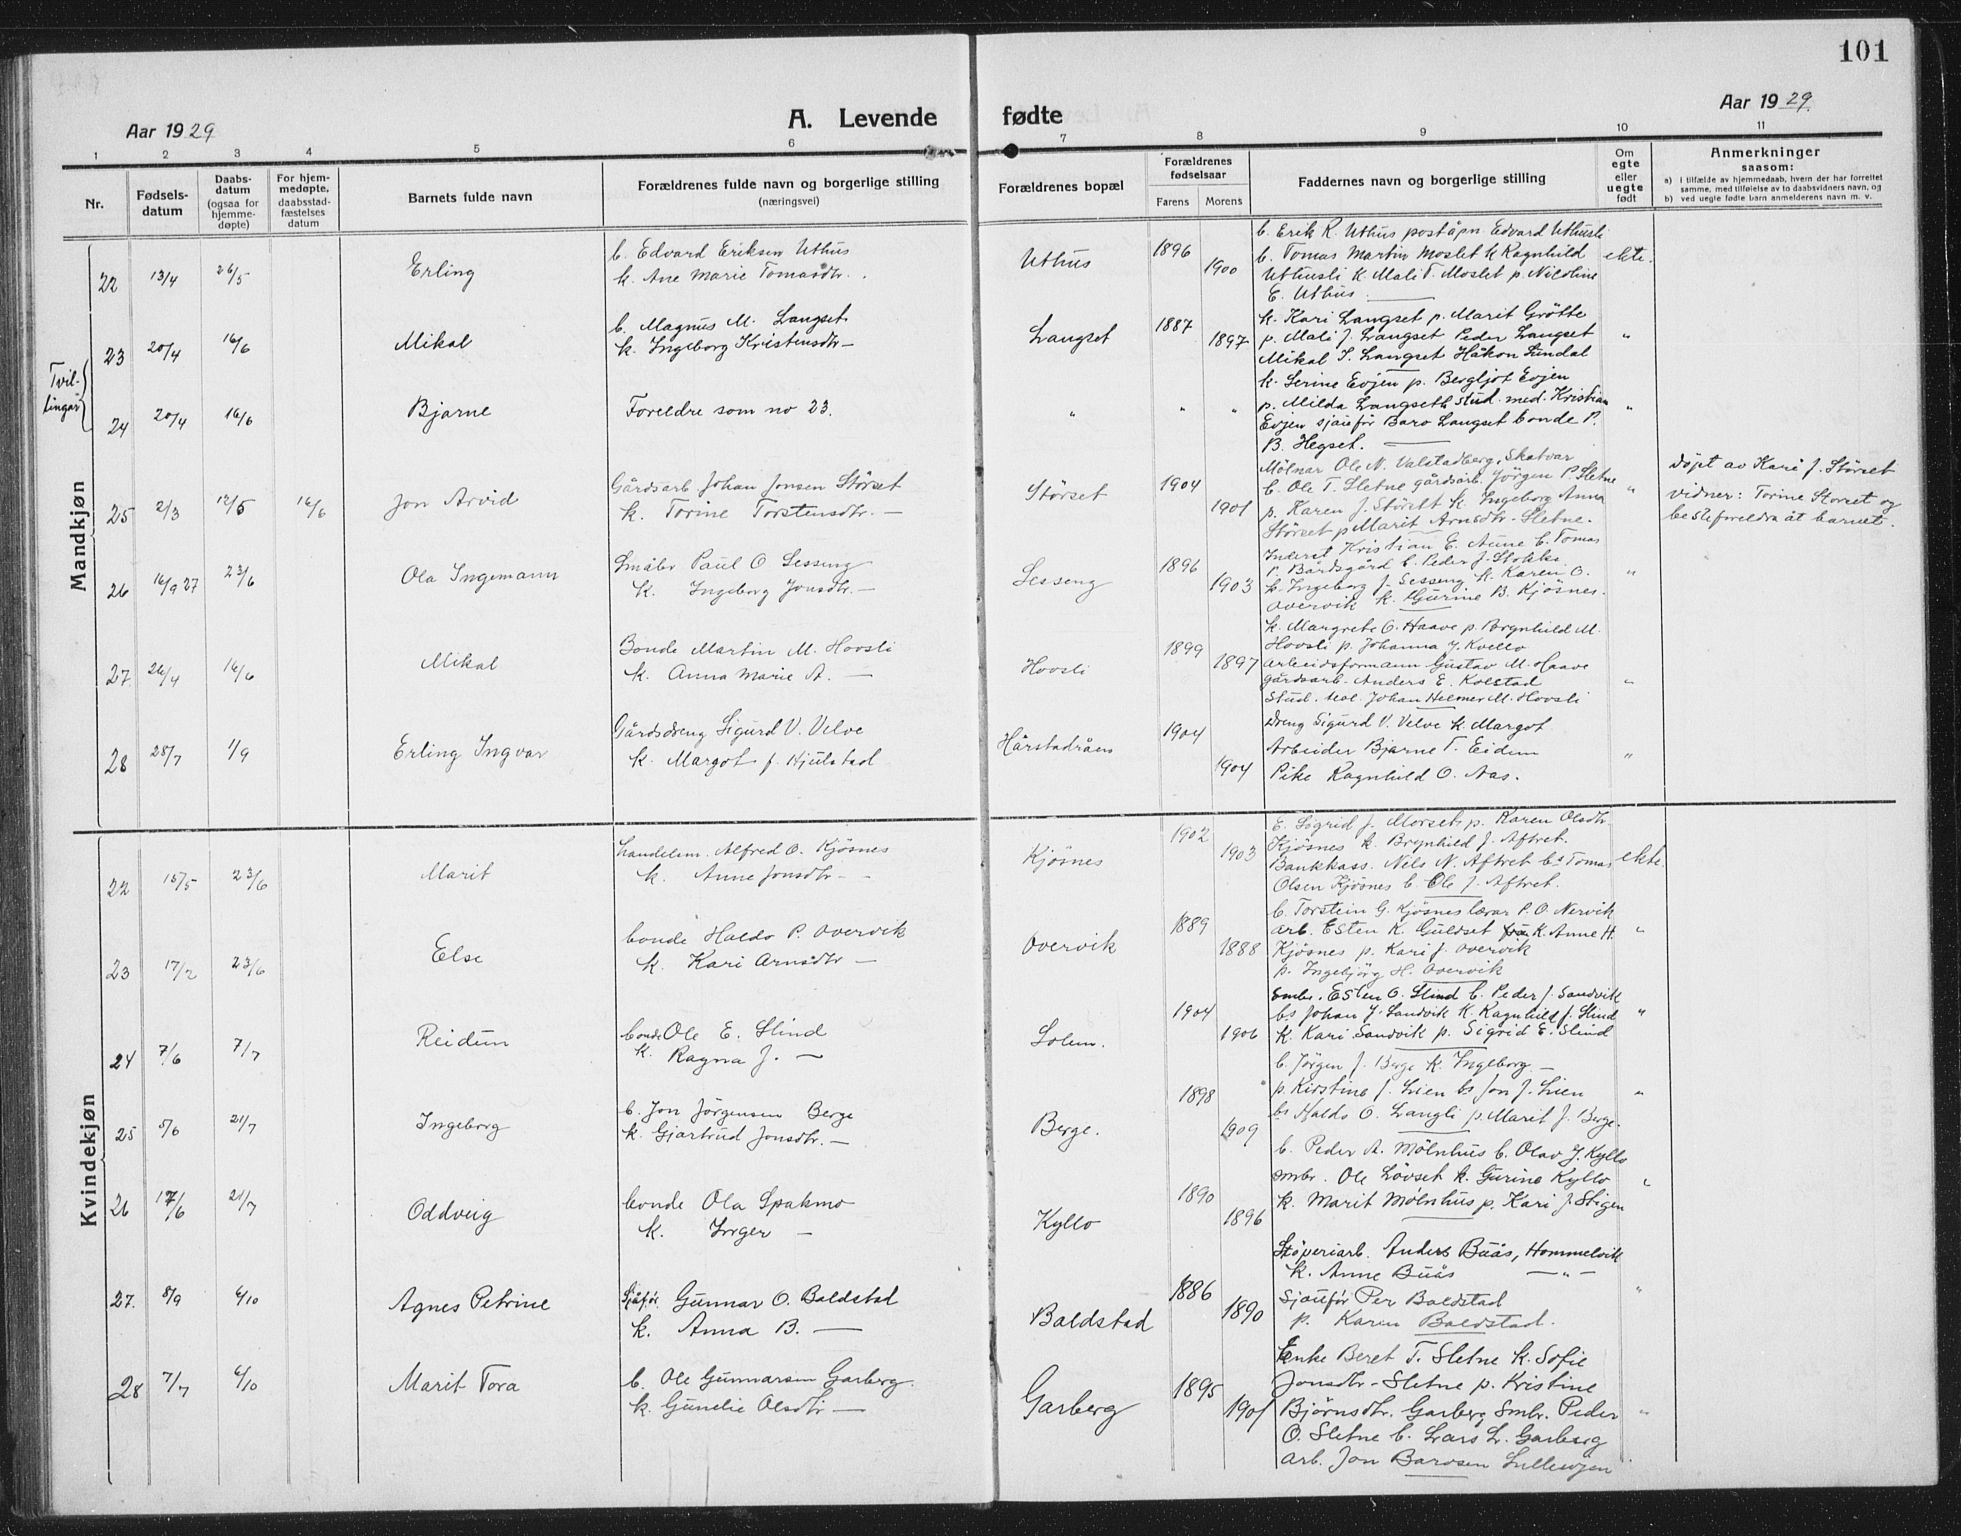 101
Aar 1929
A. Levende fødte
Aar 1929.
1 2 3 4 5 6 7 8 9 10 11
Nr.
Fødsels-
datum
Daabs-
datum
(ogsaa for
hjemme-
døpte)
For hjem-
medøpte,
daabsstad-
fæstelses
datum
Barnets fulde navn
Forældrenes fulde navn og borgerlige stilling
(næringsvei)
Forældrenes bopæl
Forældrenes
fødselsaar
Farens Morens
Faddernes navn og borgerlige stilling
Om
egte
eller
uegte
født
Anmerkninger
saasom:
a) i tilfælde av hjemmedaab, hvem der har forrettet
samme, med tilføielse av to daabsvidners navn, og
b) ved uegte fødte barn anmelderens navn m. v.
Mandkjøn
22 13/4 26/5 Erling
b. Edvard Eriksen Uthus
k. Ane Marie Tomasdtr.
Uthus 1896 1900
b. Erik R. Uthus poståpn Edvard Uthusli
b. Tomas Martin Moslet k Ragnhild
Uthusli k. Mali T. Moslet p. Nicoline
E. Uthus.
ekte.
Tvil-
lingar
23 20/4 16/6 Mikal
b. Magnus M. Langset
k. Ingeborg Kristensdtr —
Langset 1887 1897
k. Kari Langset p. Marit Grötte
p. Mali J. Langset Peder Langset
Mikal P. Langset Håkon Sundal
"
24 20/4 16/6 Bjarne
Foreldre som no 23.
" " "
k. Serine Evjen p. Bergljot Evjen
p. Milda Langseth stud. med. Kristian
Evjen sjauför Baro Langset bonde P.
B. Hegset.
"
25 2/3 12/5 16/6 Jon Arvid
Gårdsarb. Johan Jonsen Störset
k. Torine Torstensdtr. —
Störset 1904 1901
Mölnar Ole N. Valstadberg, Skatvar
b. Ole T. Sletne gårdsarb. Jörgen P. Sletne
p. Karen J. Störset k. Ingeborg Anna
Störset p Marit Arnsdtr. Sletne.
"
döpt av Kari J. Störset
vidner: Torine Störset og
besteforeldra åt barnet.
26 16/9 27 23/6 Ola Ingemann
Småbr Paul O Sesseng
k. Ingeborg Jonsdtr. —
Sesseng 1896 1903
Inderst Kristian E. Aune b. Tomas
P. Bårdsgård b. Peder J. Stokke
k. Ingeborg J. Sesseng k. Karen O.
Overvik k. Gurine B. Kjösnes.
"
27. 26/4 16/6 Mikal
Bonde Martin M. Hovsli
k. Anna Marie A. —
Hovsli 1899 1897
k. Margrete O. Haave p. Brynhild M.
Hovsli p. Johanna J. Kvello
arbeidsformann Gustav M. Haave
gårdsarb. Anders E. Kolstad
Stud. Johan Helmer M. Hovsli
"
28 28/7 1/9 Erling Ingvar
Gårdsdreng Sigurd V. Velve
k. Margot f. Hjulstad
Hårstadråen 1904 1904
Dreng Sigurd V. Velve k. Margot
Arbeider Bjarne T. Eidem
Pike Ragnhild O. Aas.
"
Kvindekjøn
22 15/5 23/6 Marit
handelsm. Alfred O. Kjösnes
k. Anne Jonsdtr —
Kjösnes 1902 1903
E. Sigrid J. Morset, p. Karen Olsdtr.
Kjösnes k. Brynhild J. Aftret.
Bankkass. Nels N. Aftret bs Tomas
Olsen Kjösnes b. Ole J. Aftret.
ekte.
23 17/2 23/6 Else
bonde Haldo P. Overvik
k. Kari Arnsdtr —
Overvik 1889 1888
b. Torstein G. Kjösnes lærar P. O. Nervik
arb. Esten K. Guldset k. Anne H.
Kjösnes p. Kari J. Overvik
p. Ingebjörg H. Overvik
"
24 7/6 7/7 Reidun
bonde Ole E. Slind
k. Ragna J. —
Solem. 1904 1906
Smbr. Esten O. Slind b. Peder J. Sandvik
bs Johan J. Sandvik k. Ragnhild J. Slind
k. Kari Sandvik p. Sigrid E. Slind
"
25 5/6 21/7 Ingeborg
b. Jon Jörgensen Berge
k. Gjartrud Jonsdtr. —
Berge. 1898 1909
b. Jörgen J. Berge k. Ingeborg —
p. Kirstine J. Lien bs Jon J. Lien
bs Haldo O. Langli p. Marit J. Berge.
"
26 17/6 21/7 Oddveig
bonde Ola Spakmo
k. Inger —
Kyllo 1890 1896
b. Peder A. Mölnhus b. Olav J. Kyllo
smbr. Ole Lövset k. Gurine Kyllo
k. Marit Mölnhus p. Kari J. Stigen
"
27. 8/9 6/10 Agnes Petrine
Sjåför Gunnar O. Baldstad
k. Anna B. —
Baldstad 1886 1890
Stöperiarb. Anders Buås, Hommelvik
k. Anne Buås — " —
Sjauför Per Baldstad
p. Karen Baldstad.
"
28 7/7 6/10 Marit Tora
b. Ole Gunnarsen Garberg.
k. Gunelie Olsdtr —
Garberg 1895 1901
Enke Beret T. Sletne k. Sofie
Jonsdtr. Sletne p. Kristine
Björnsdtr. Garberg Smbr. Peder
O. Sletne b. Lars L. Garberg
arb. Jon Barosen Lillevojen
"